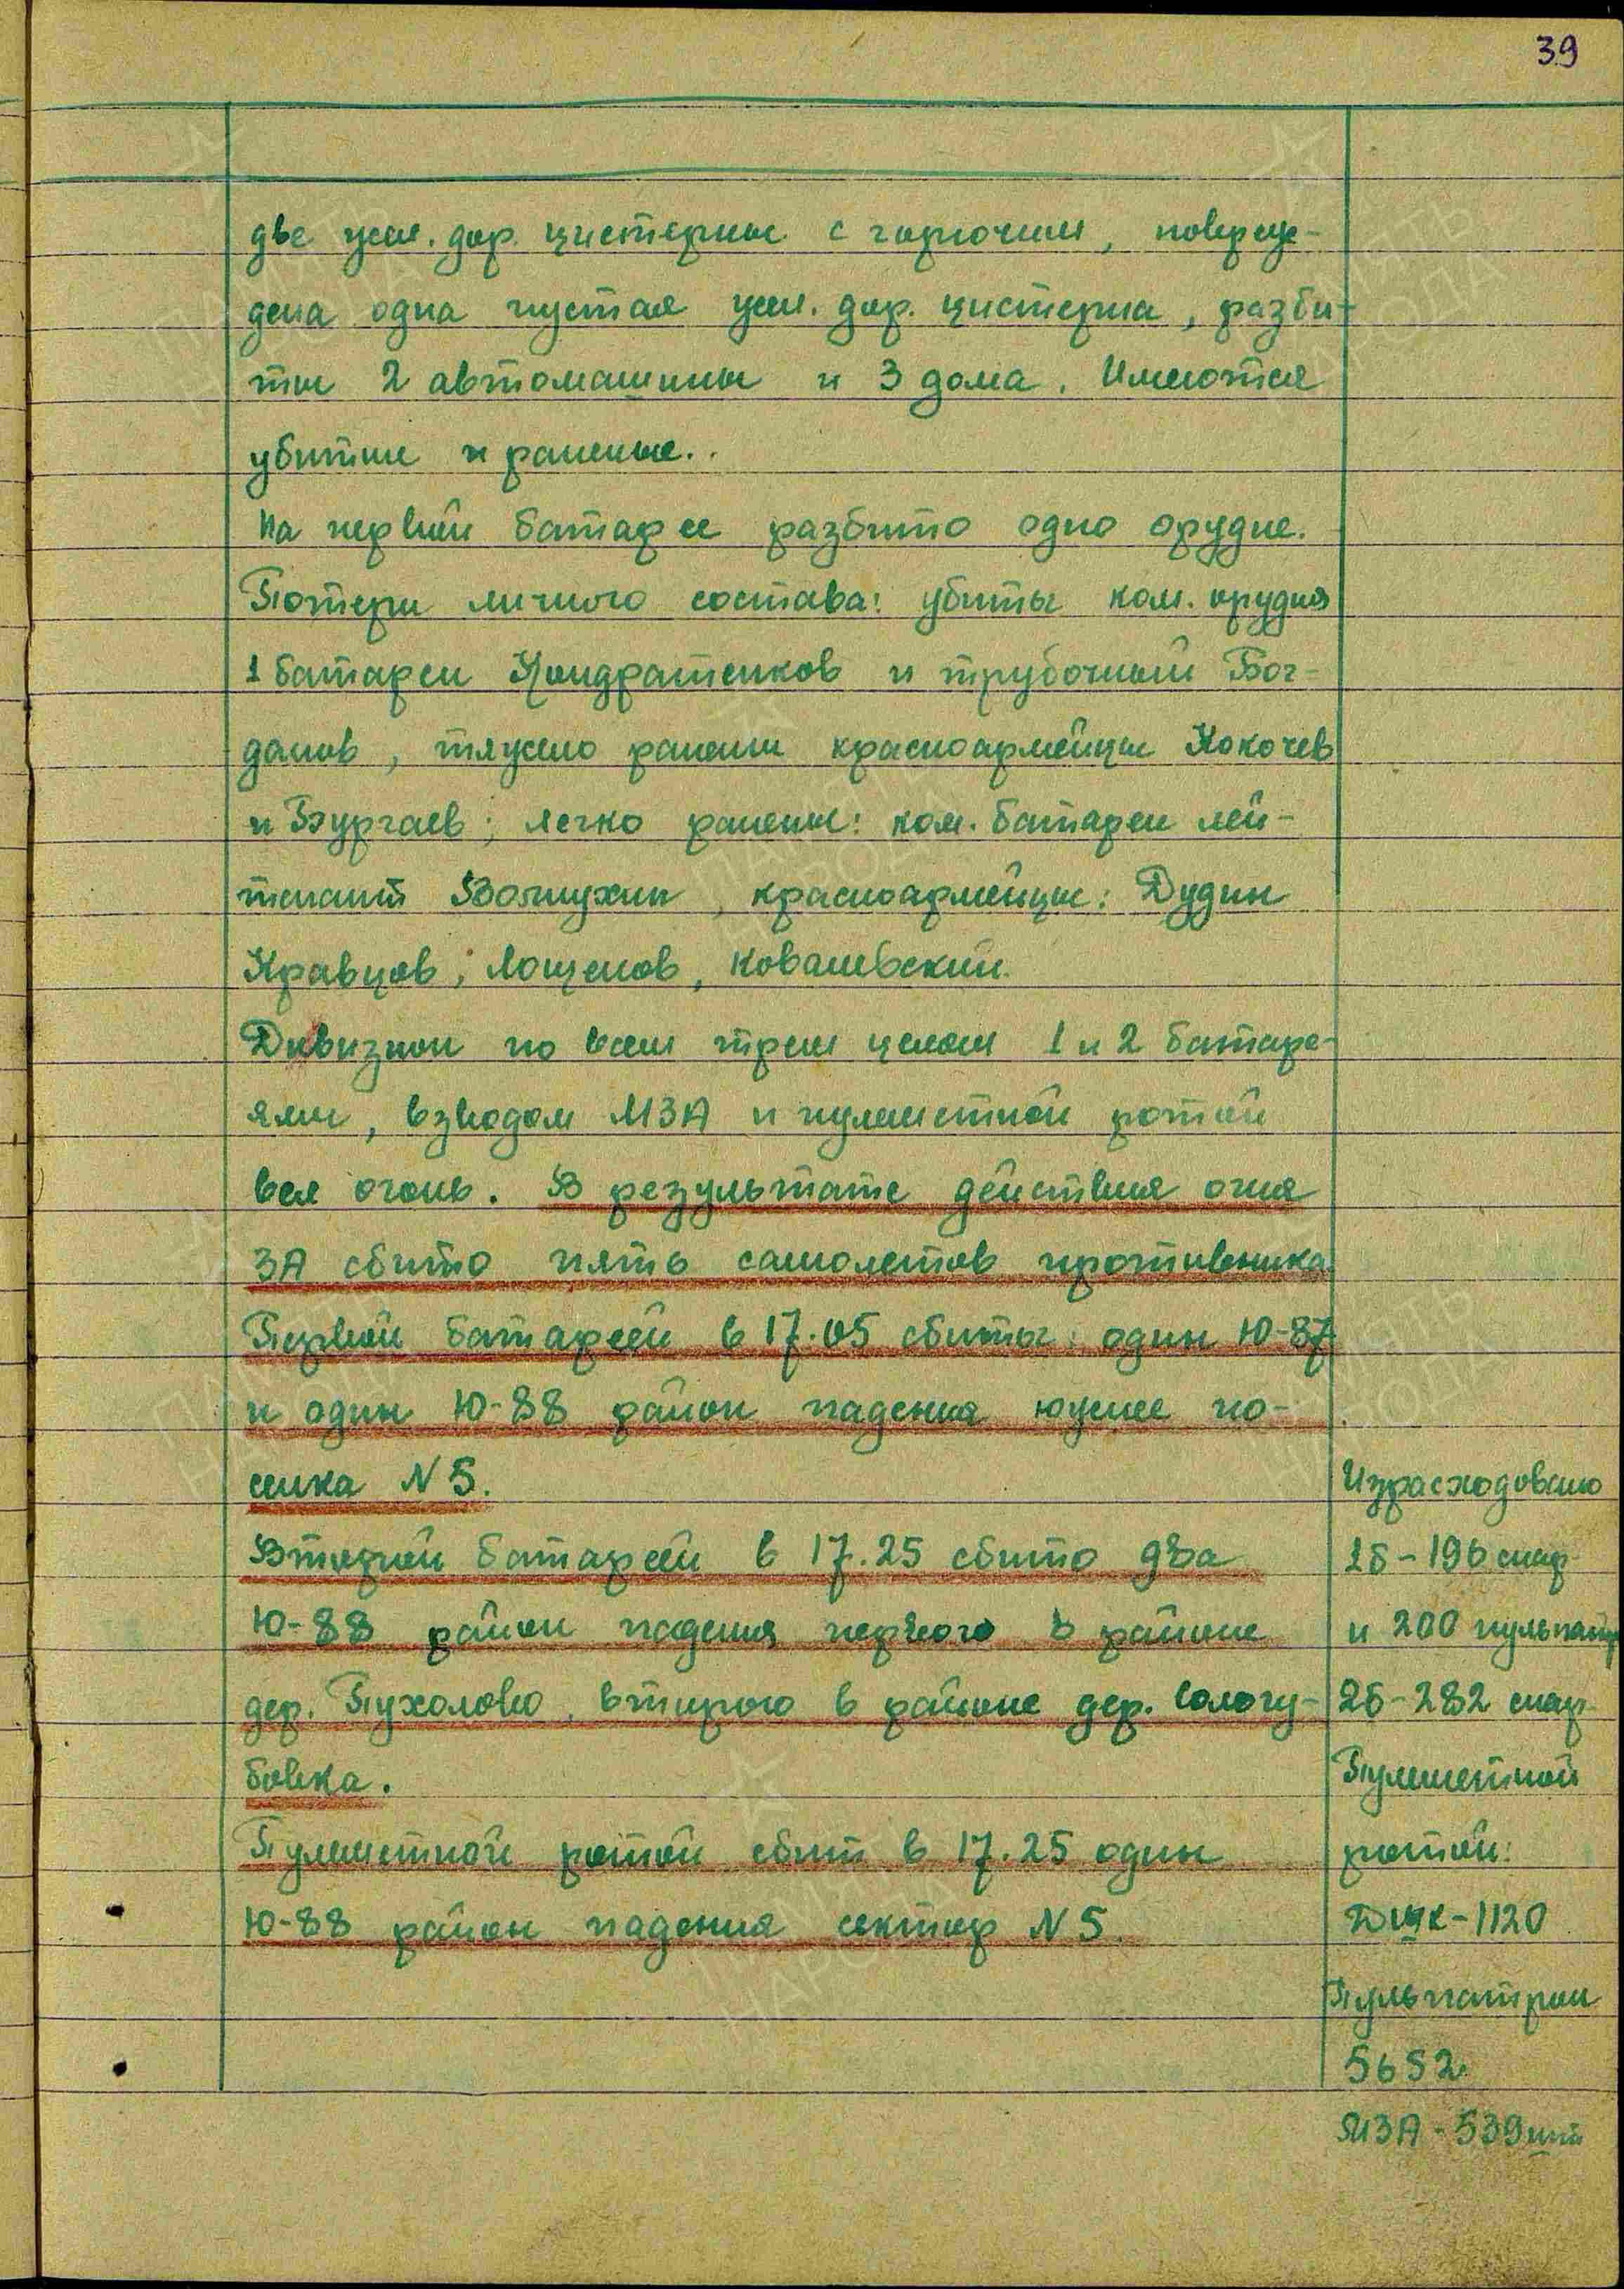 39
две жел. дор. цистерны с горючим, повреж-
дена одна пустая жел. дор. цистерна, разби-
ты 2 автомашины и 3 дома. Имеются
убитые и раненые..
На первой батарее разбито одно орудие.
Потери личного состава: убиты ком. орудия
1 батареи Кондратенков и трубочный Бог-
данов, тяжело ранены красноармейцы Кокочев
и Бургаев; легко ранены: ком. батареи лей-
тенант красноармейцы: Дудин
Кравцов, Лощенов, Ковалевский.
Дивизион по всем трем целям 1 и 2 батаре-
ями, взводом МЗА и пулеметной ротой
вел огонь. В результате действия огня
ЗА сбито пять самолетов противника
Первой батареей в 17.05 сбиты: один Ю-87
и один Ю-88 район падения южнее по-
селка N 5.
Второй батареей в 17.25 сбито два
Ю-88 район падения первого в районе
дер. Пухолово, второго в районе дер. Сологу-
бовка.
Пулеметной ротой сбит в 17.25 один
Ю-88 район падения сектор N 5.
Израсходовано
1б-196 снар
и 200 пульпатр
2б-282 снар
Пулеметной
ротой:
ДШК-1120
Пульпатрон
5652.
МЗА-539 шт
ПАМЯТЬ
НАРОДА